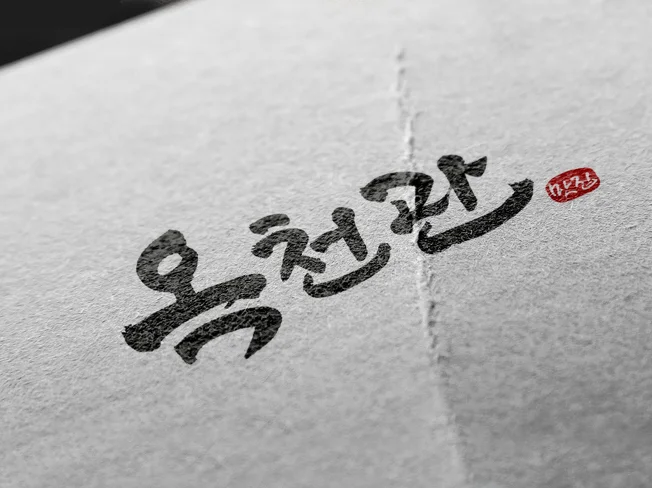 옥천관